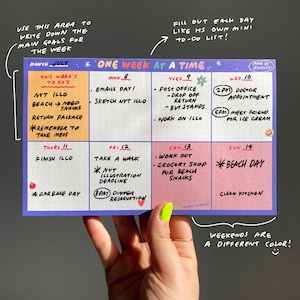 USE THIS AREA TO
WRITE DOWN THE
MAIN GOALS FOR
THE WEEK
FILL OUT EACH DAY
LIKE ITS OWN MINI
TO-DO LIST!
MONTH JULY
ONE WEEK AT A TIME.
THIS WEEK'S
TO DO'S
NYT ILLO
BEACH → NEED
SNACKS
RETURN PACKAGE
*REMEMBER TO
TAKE MEDS
MON. 8
EMAILS DAY!
SKETCH NYT ILLO
TUES. 9
• POST OFFICE
- DROP OFF
RETURN
- BUY STAMPS
• WORK ON ILLO
WED. 10
2PM DOCTOR
APPOINTMENT
5PM MEET FRIEND
FOR ICE CREAM
THURS. 11
FINISH ILLO
* GARBAGE DAY
FRI. 12
TAKE A WALK
* NYT
ILLUSTRATION
DEADLINE
8PM DINNER
RESERVATION
SAT. 13
• WORK OUT
• GROCERY SHOP
FOR BEACH
SNACKS
SUN. 14
*BEACH DAY
CLEAN KITCHEN
WEEKENDS ARE
A DIFFERENT COLOR!